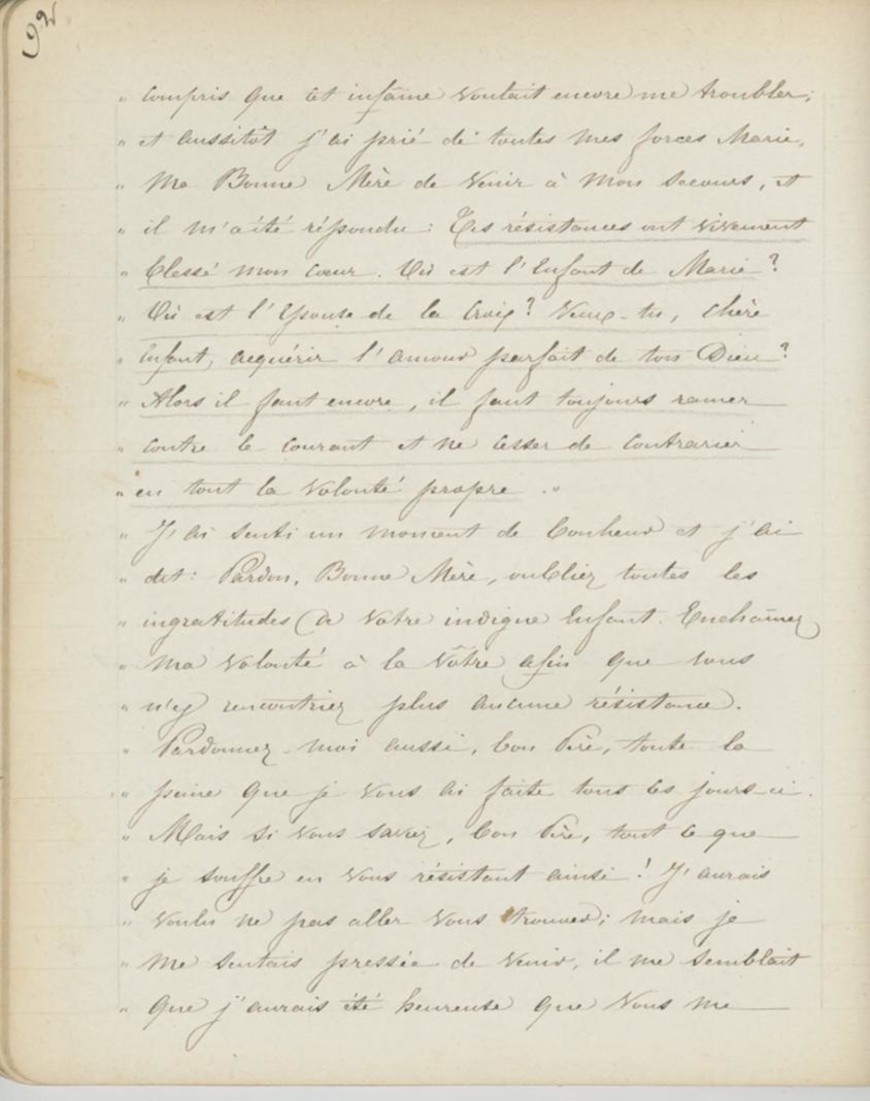 92
" compris que cet infâme voulait encore me troubler;
" et aussitôt j'ai prié de toutes mes forces Marie,
" Ma Bonne Mère de venir à mon secours, et
" il m'a été répondu : Tes résistances ont vivement
" blessé mon cœur. Où est l'Enfant de Marie ?
" Où est l'Epouse de la Croix ? Veux-tu, chère
" Enfant, acquérir l'amour parfait de ton Dieu ?
" Alors il faut encore, il faut toujours ramer
" contre le courant et ne cesser de contrarier
" en tout ta volonté propre . "
" J'ai senti un moment de bonheur et j'ai
" dit : Pardon, Bonne Mère, oubliez toutes les
" ingratitudes de votre indigne Enfant. Enchaînez
" ma volonté à la Vôtre afin que vous
" n'y rencontriez plus aucune résistance.
" Pardonnez-moi aussi, bon Père, toute la
" peine que je vous ai faite tous ces jours-ci.
" Mais si vous saviez, bon Père, tout ce que
" je souffre en vous résistant ainsi ! J'aurais
" voulu ne pas aller vous trouver; mais je
" me sentais pressée de venir, il me semblait
" que j'aurais été heureuse que Vous me